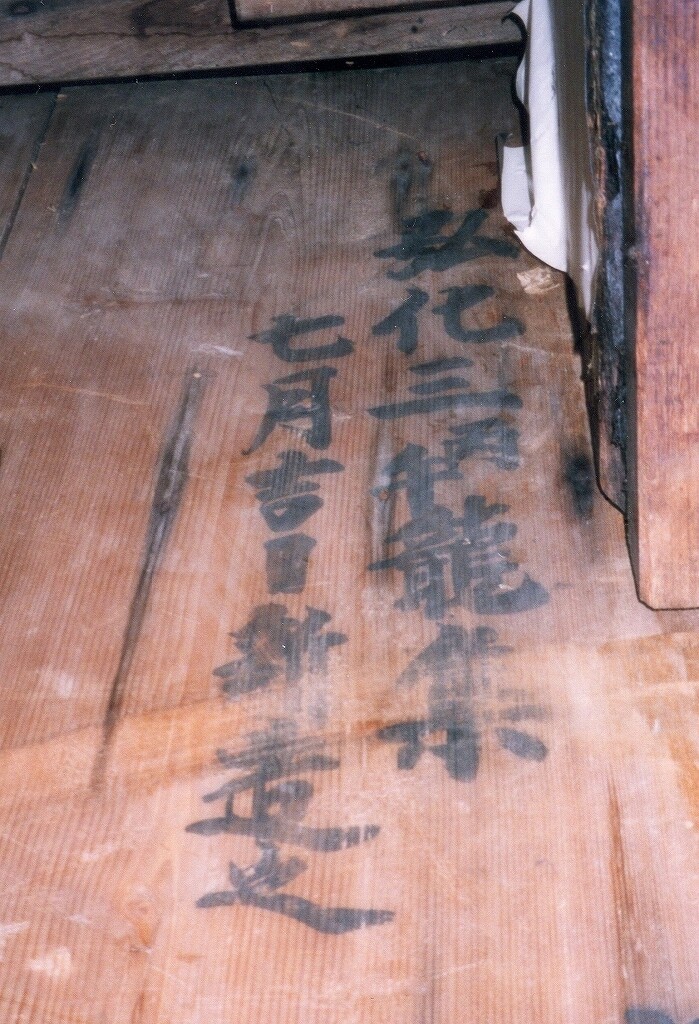 弘化三丙午龍集
七月吉日新造之